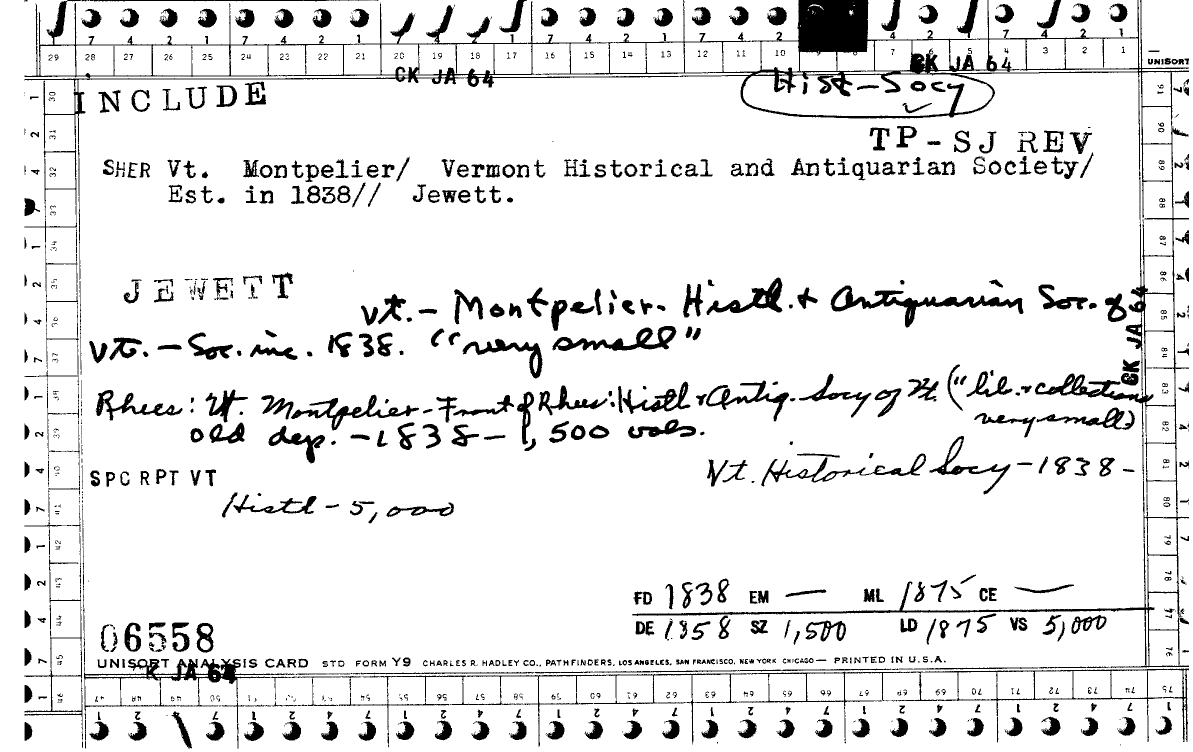 7 4 2 1 7 4 2 1 7 4 2 1 7 4 2 1 7 4 2 1 7 4 2 7 4 2 1 7 4 2 1
29 28 27 26 25 24 23 22 21 20 19 18 17 16 15 14 13 12 11 10 7 6 5 4 3 2 1
UNISORT
CK JA 64
CK JA 64
INCLUDE
Hist-Socy
TP-SJ REV
SHER Vt. Montpelier/ Vermont Historical and Antiquarian Society/
Est. in 1838// Jewett.
JEWETT
Vt. - Montpelier. Histl. + Antiquarian Soc. of
Vt. - Soc. inc. 1838. "very small"
CK JA 64
Rhees: Vt. Montpelier - Front of Rhees: Histl + Antiq. Socy of Vt. ("lib. + collections
very small)
old dep. - 1838 - 1,500 vols.
SPC RPT VT
Vt. Historical Socy - 1838 -
Histl - 5,000
FD 1838 EM — ML 1875 CE —
DE 1358 SZ 1,500 LD 1875 VS 5,000
06558
UNISORT ANALYSIS CARD STD FORM Y9 CHARLES R. HADLEY CO., PATHFINDERS, LOS ANGELES, SAN FRANCISCO, NEW YORK CHICAGO — PRINTED IN U.S.A.
CK JA 64